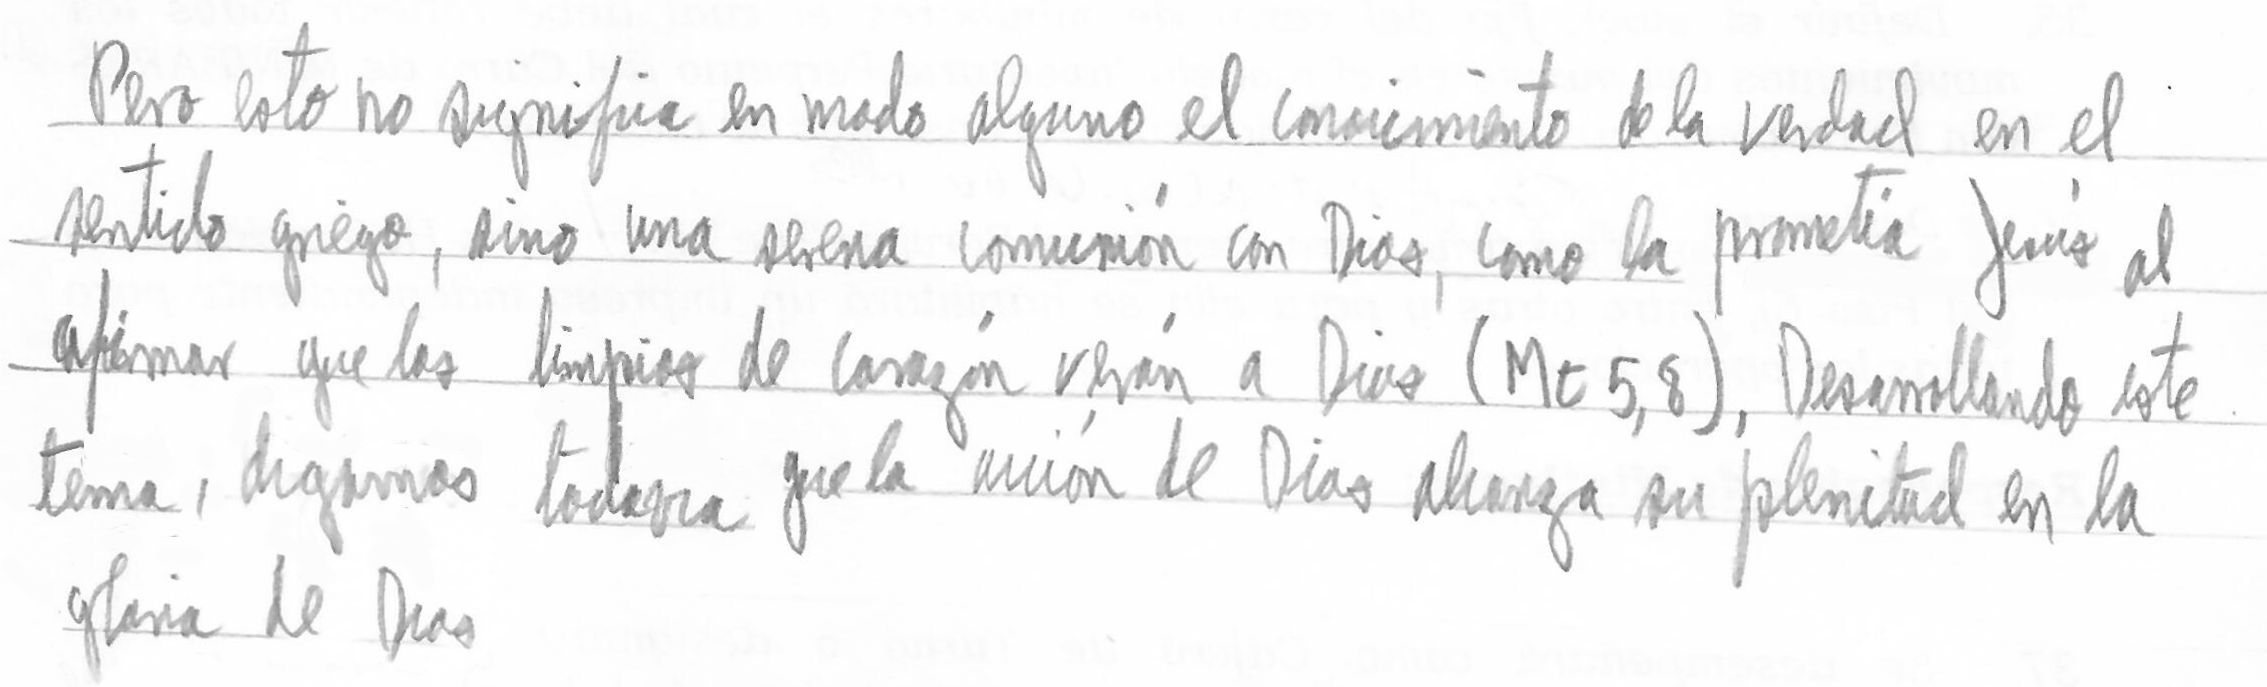 Pero esto no significa en modo alguno el conocimiento de la verdad en el
sentido griego, sino una serena comunión con Dios, como la prometía Jesús al
afirmar que los limpios de corazón verán a Dios (Mt 5,8). Desarrollando este
tema, digamos todavia que la acción de Dios alcanza su plenitud en la
gloria de Dios